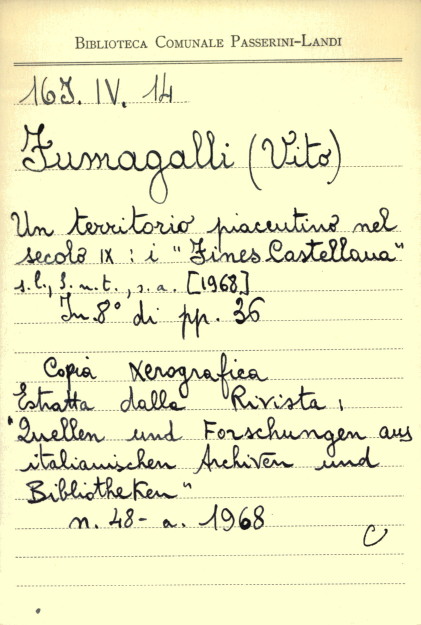 BIBLIOTECA COMUNALE PASSERINI-LANDI
16J. IV. 14
Fumagalli (Vito)
Un territorio piacentino nel
secolo IX : i "Fines Castellana"
s.l., s.n.t., s.a. [1968]
In.8° di pp. 36
Copia xerografica
Estratta dalla Rivista,
"Quellen und Forschungen aus
italianischen Archiven und
Bibliotheken"
n. 48- a. 1968
C